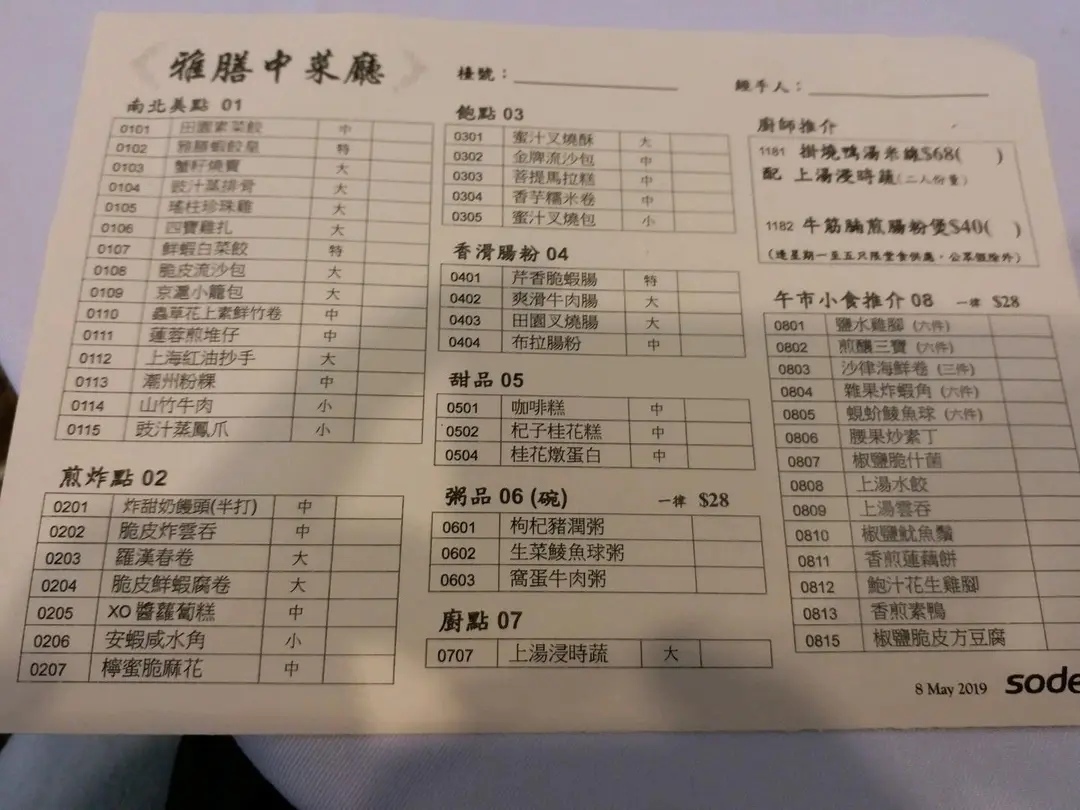 雅膳中菜廳
檯號：
經手人：
南北美點 01
0101 田園素菜餃 中
0102 雅膳蝦餃皇 特
0103 蟹籽燒賣 大
0104 豉汁蒸排骨 大
0105 瑤柱珍珠雞 大
0106 四寶雞扎 大
0107 鮮蝦白菜餃 特
0108 脆皮流沙包 大
0109 京滬小籠包 大
0110 蟲草花上素鮮竹卷 中
0111 蓮蓉煎堆仔 中
0112 上海紅油抄手 大
0113 潮州粉粿 中
0114 山竹牛肉 小
0115 豉汁蒸鳳爪 小
煎炸點 02
0201 炸甜奶饅頭(半打) 中
0202 脆皮炸雲吞 中
0203 羅漢春卷 大
0204 脆皮鮮蝦腐卷 大
0205 XO 醬蘿蔔糕 中
0206 安蝦咸水角 小
0207 檸蜜脆麻花 中
飽點 03
0301 蜜汁叉燒酥 大
0302 金牌流沙包 中
0303 菩提馬拉糕 中
0304 香芋糯米卷 中
0305 蜜汁叉燒包 小
香滑腸粉 04
0401 芹香脆蝦腸 特
0402 爽滑牛肉腸 大
0403 田園叉燒腸 大
0404 布拉腸粉 中
甜品 05
0501 咖啡糕 中
0502 杞子桂花糕 中
0504 桂花燉蛋白 中
粥品 06 (碗) 一律 $28
0601 枸杞豬潤粥
0602 生菜鯪魚球粥
0603 窩蛋牛肉粥
廚點 07
0707 上湯浸時蔬 大
廚師推介
1181 掛燒鴨湯米線$68( )
配 上湯浸時蔬(二人份量)
1182 牛筋腩煎腸粉煲$40( )
(逢星期一至五只限堂食供應，公眾假除外)
午市小食推介 08 一律 $28
0801 鹽水雞腳 (六件)
0802 煎釀三寶 (六件)
0803 沙律海鮮卷 (三件)
0804 雜果炸蝦角 (六件)
0805 蜆蚧鯪魚球 (六件)
0806 腰果炒素丁
0807 椒鹽脆什菌
0808 上湯水餃
0809 上湯雲吞
0810 椒鹽魷魚鬚
0811 香煎蓮藕餅
0812 鮑汁花生雞腳
0813 香煎素鴨
0815 椒鹽脆皮方豆腐
8 May 2019
sode